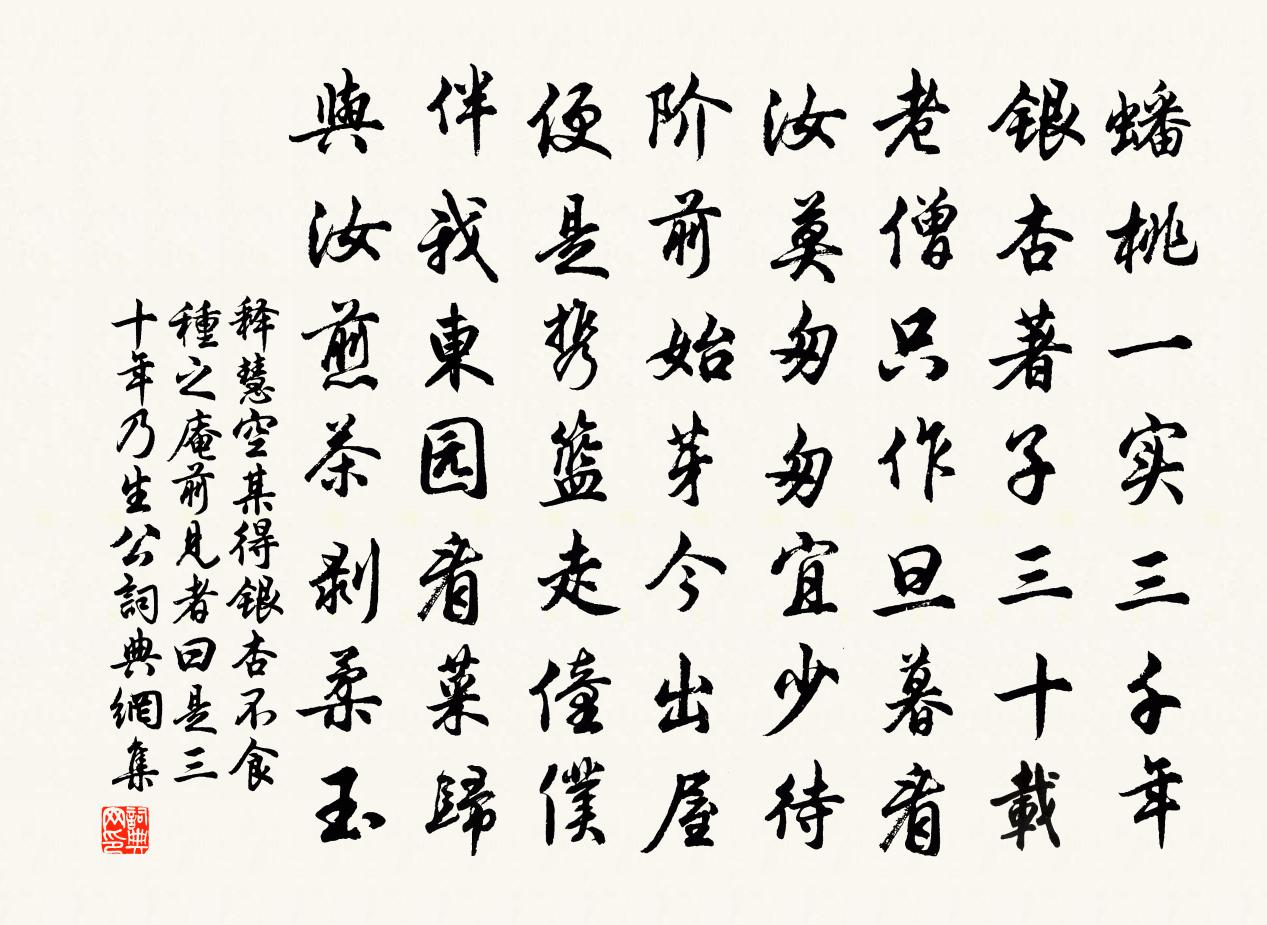 蟠桃一实三千年
银杏著子三十載
老僧只作旦暮看
汝莫匆匆宜少待
阶前始芽今出屋
便是携籃走僮僕
伴我東园看菓歸
與汝煎茶剥柔玉
释慧空某得银杏不食
種之庵前見者曰是三
十年乃生公詞典網集
詞典网印